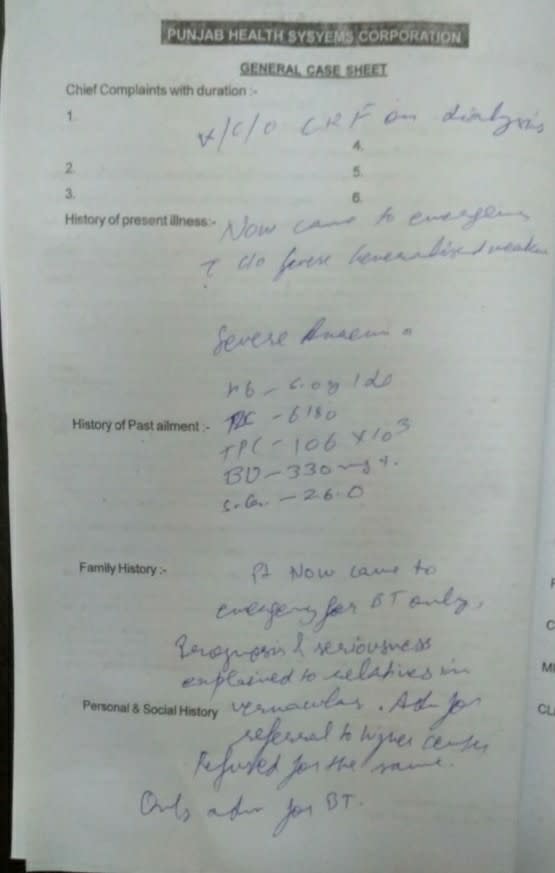 PUNJAB HEALTH SYSYEMS CORPORATION
GENERAL CASE SHEET
Chief Complaints with duration :-
1.
K/C/O CRF on dialysis
4.
2.
5.
3.
6.
History of present illness:- Now came to emergency
c/o Generalised weakn
Severe Anaemia
Hb - 6.0g/dl
History of Past ailment :- TLC - 6180
TPC - 106 X 10³
BU - 330 mg%
S.Cr. - 26.0
Family History :- Pt Now came to
emergency for BT only.
Prognosis & seriousness
explained to relatives in
Personal & Social History vernacular. Adv for
referral to higher center
Refused for the same.
Only adm for BT.